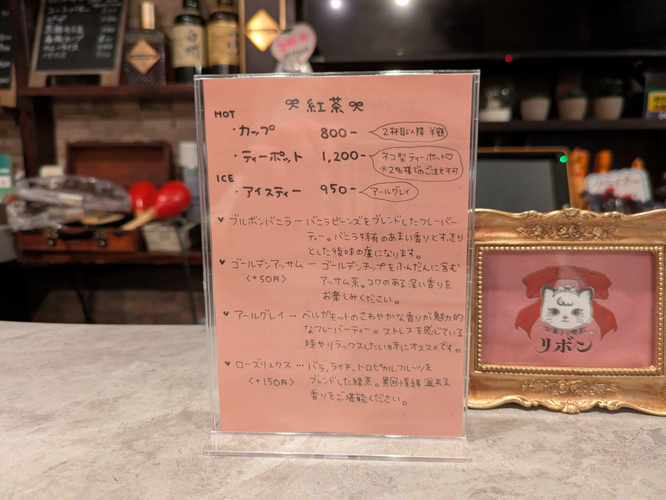 紅茶
HOT
・カップ 800- 2杯目以降 半額
・ティーポット 1,200- ネコ型ティーポット♡
※2名様でのご注文不可
ICE
・アイスティー 950- アールグレイ
♥ ブルボンバニラ … バニラビーンズをブレンドしたフレーバー
ティー。バニラ特有のあまい香りとすっきり
とした後味の虜になります。
♥ ゴールデンアッサム … ゴールデンチップをふんだんに含む
(+50円) アッサム茶。コクのある深い香りを
お楽しみください。
♥ アールグレイ … ベルガモットのさわやかな香りが魅力的
なフレーバーティー。ストレスを感じている
時やリラックスしたい時にオススメです。
♥ ローズリュクス … バラ、ライチ、トロピカルフルーツを
(+150円) ブレンドした緑茶。異国情緒溢れる
香りをご堪能ください。
リボン